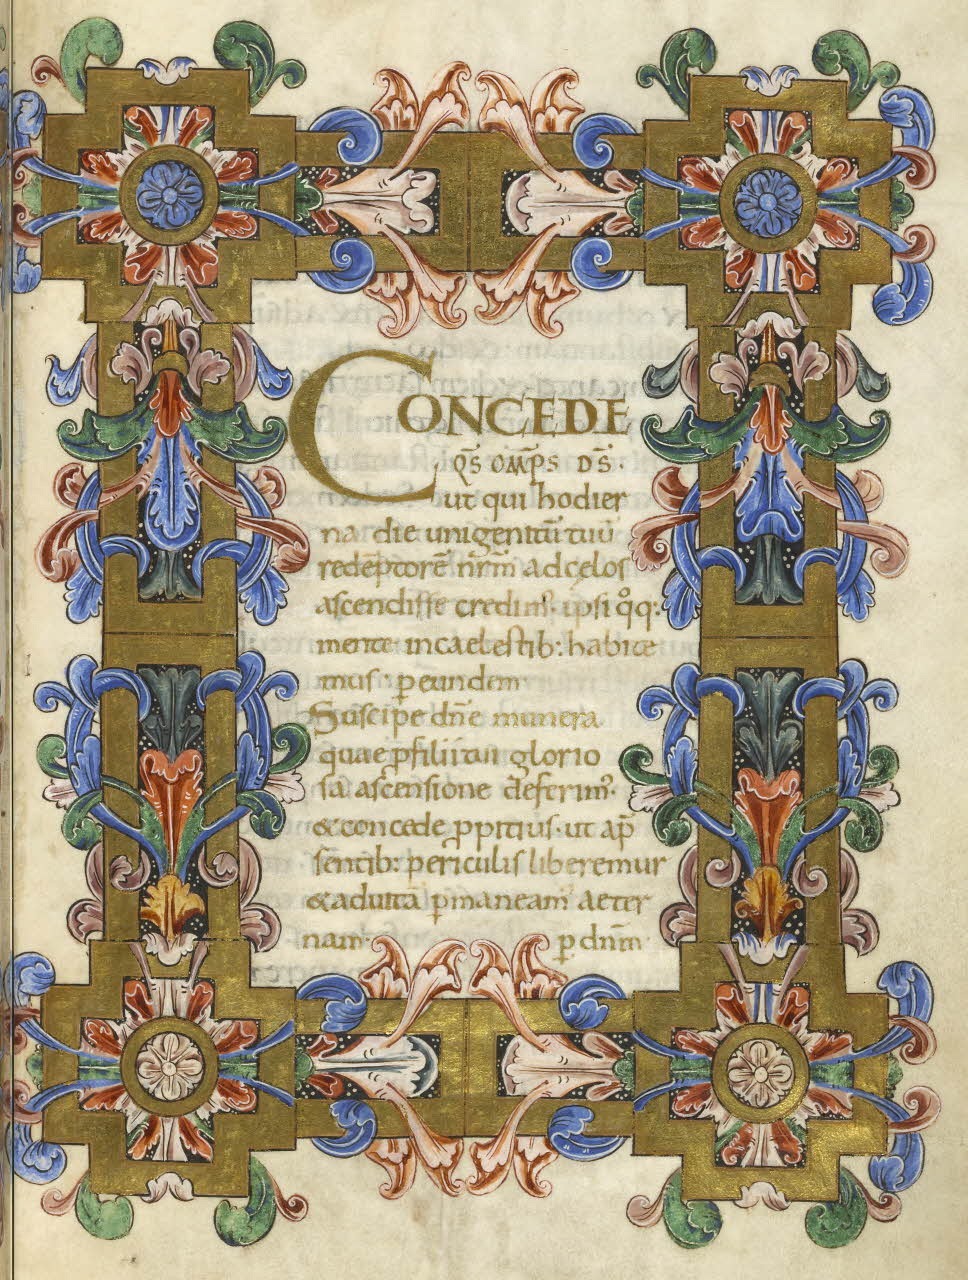 CONCEDE
QS̄ OMP̄S D̄S·
ut qui hodier
na die unigenitū tuū
redēptorē nr̄m ad cęlos
ascendisse credim᾽ ipsi q̊q·
mente in caelestib: habite
mus· ꝑ eundem
Suscipe dn̄e munera
quae ꝓ filii tui glorio
sa ascensione deferim᾽·
& concede ꝓpitius· ut a p̄
sentib: periculis liberemur
& ad uitā ꝑmaneam᾽ aeter
nam· ꝑ dn̄m